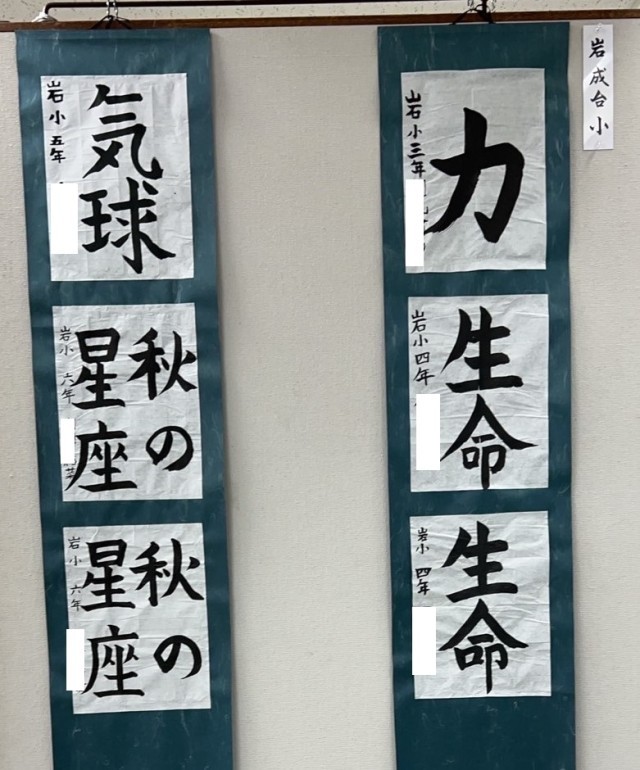 岩成台小
力
岩小三年
生命
岩小四年
生命
岩小 四年
気球
岩小五年
秋の
星座
岩小 六年
秋の
星座
岩小 六年